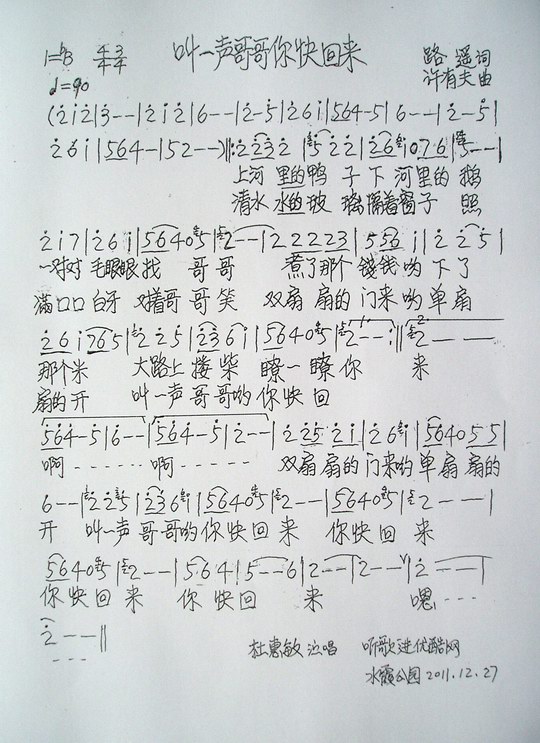 1=♭B 4/4 3/4 叫一声哥哥你快回来 路遥词
♩=90 许有夫曲
(2̇ i 2̇ | 3̇ - - | 2̇ i 2̇ | 6 - - | 2̇ - 5̇ | 2̇ 6 i | 564 - 5 | 6 - - | 2̇ - 5̇ |
2̇ 6 i | 564 - | 5 2 - - ) ‖: 2̇ 2̇3̇ 2̇ | 5̇ 2̇ 2̇ | 2̇6 i 076 | 5 - - |
上河 里的鸭 子下 河里的 鹅
清水 水的玻 璃隔着窗子 照
2̇ i 7 | 2̇ 6 i | 56405 | 2 - - | 2 2 2 2 23 | 5 56 i | 2̇ 2̇ 5̇ |
一对对 毛眼眼找 哥哥 煮了那个 钱钱 哟 下了
满口口白牙 对着哥哥笑 双扇 扇的 门来哟单扇
2̇ 6 i 765 | 2̇ 2̇ 5̇ | 2̇3̇ 6 i | 56405 | 2 - - :‖ 2 - - - -
那个米 大路上 搂柴 瞭一瞭你 来
扇的开 叫一声哥哥哟你快回
564 - 5 | 6 - - | 564 - 5 | 2 - - | 2̇ 2̇5̇ 2̇i | 2̇ 6 i | 5640 55 |
啊 - - - - - - 啊 - - - - - - 双扇扇的门来哟单扇扇的
6 - - | 2̇ 2̇ 5̇ | 2̇3̇ 6 i | 56405 | 2 - - | 56405 | 2 - - - |
开 叫一声哥哥哟你快回来 你快回来
56405 | 2 - - | 564 | 5 - - 6 | 2̇ - - | 2̇ - - ∨ | 2̇ - - - |
你快回来 你快回 来 嗯 - - - -
2̇ - - ‖
- - - 杜惠敏 泣唱 听歌进优酷网
水霞公园 2011.12.27